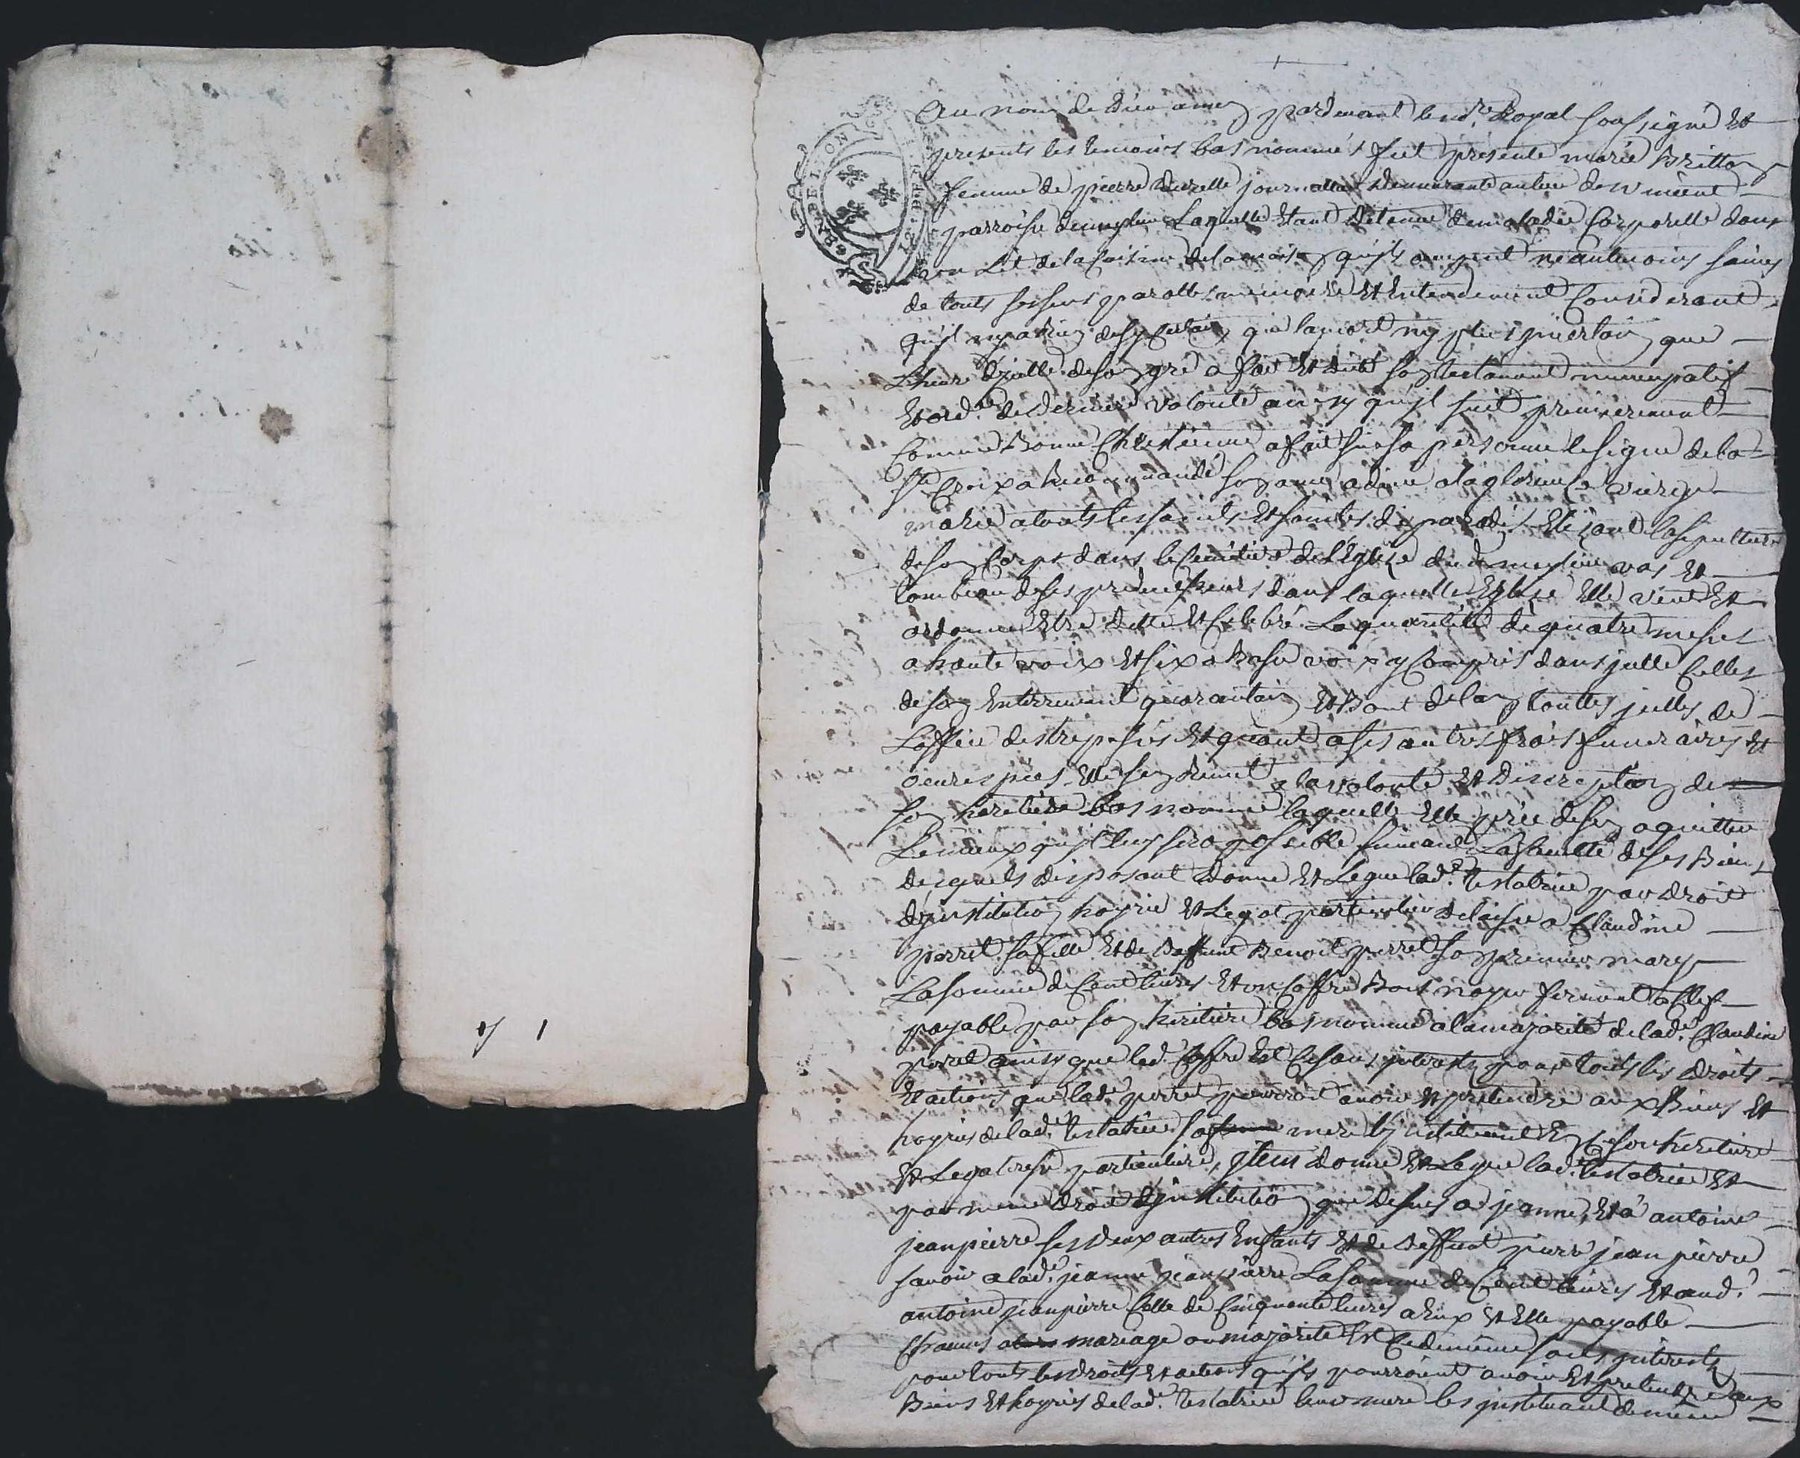 GEN. DE LYON
Au nom de dieu amen pardevant le nore Royal soussigné Et
presents les temoins bas nommés fut presente marie Britton
femme de pierre durelle journallier demeurante au lieu de
parroisse de laquelle Etant detenue de maladie Corporelle dans
un Lit de la Cuisine de la maison qu'ils occupent neantmoins saine
de touts ses sens parolle memoire Et Entendement Considerant
qu'il ny a rien de sy certain que la mort ny plus jncertain que
L'heure d'jcelle de son gré a fait Et dicté son testament nuncupatif
Et ordce de derniere volonté ainsy qu'il suit premierement
Comme Bonne Chretienne a fait sur sa personne le signe de la
Ste Croix a Recommandé son ame a dieu a la glorieuse vierge
marie a touts les saints Et saintes du paradis Elisant la sepulture
de son Corps dans le Cimetiere de l'Eglise dud. vas Et
tombeau de ses predecesseurs dans laquelle Eglise Elle veut Et
ordonne Etre dittes Et Celebré La quantitté de quatre messes
a haute voix Et six a Basse voix y Compris dans jcelle Celles
de son Enterrement quarantain Et Bout de lan touttes jcelles de
L'office des trepassés Et quant a ses autres frais funeraires Et
oeuvres pies Elle s'en Remet a la volonté Et discreption de
son heritiere bas nommé laquelle Elle prie de s'en aquitter
Le mieux qu'il luy sera possible suivant La faculté de ses Biens
desquels disposant donne Et Legue lade testatrice par droit
d'jnstitution hoyrie Et Legat particulier delaisse a Claudine
perret sa fille Et de deffunt Benoit perret son premier mary
La somme de Cent livres Et un Coffre Bois noyer fermant a Clef
payable par son heritiere bas nommé a la majorité de lade Claudine
perret ainsy que led. Coffre Et Ce sans jnterests pour touts les droits
Et actions que lade perret pourroit avoir Et pretendre aux Biens Et
hoyries de lade testatrice sa mere l'jnstituant En Ce son heritiere
Et Legatresse particuliere, jtem donne Et Legue lade testatrice Et
par meme droit d'jnstitution que dessus a jeanne, Et a antoine
jeanpierre ses deux autres Enfants Et de deffunt pierre jeanpierre
savoir a lade jeanne jeanpierre La somme de Cent livres Et aud.
antoine jeanpierre Celle de Cinquante livres a Eux Et Elle payable
mariage ou majorité Et Ce de meme sans jnterests
pour touts les droits Et actions qu'ils pourroient avoir Et pretendre aux
Biens Et hoyries de lade testatrice leur mere les jnstituant de meme